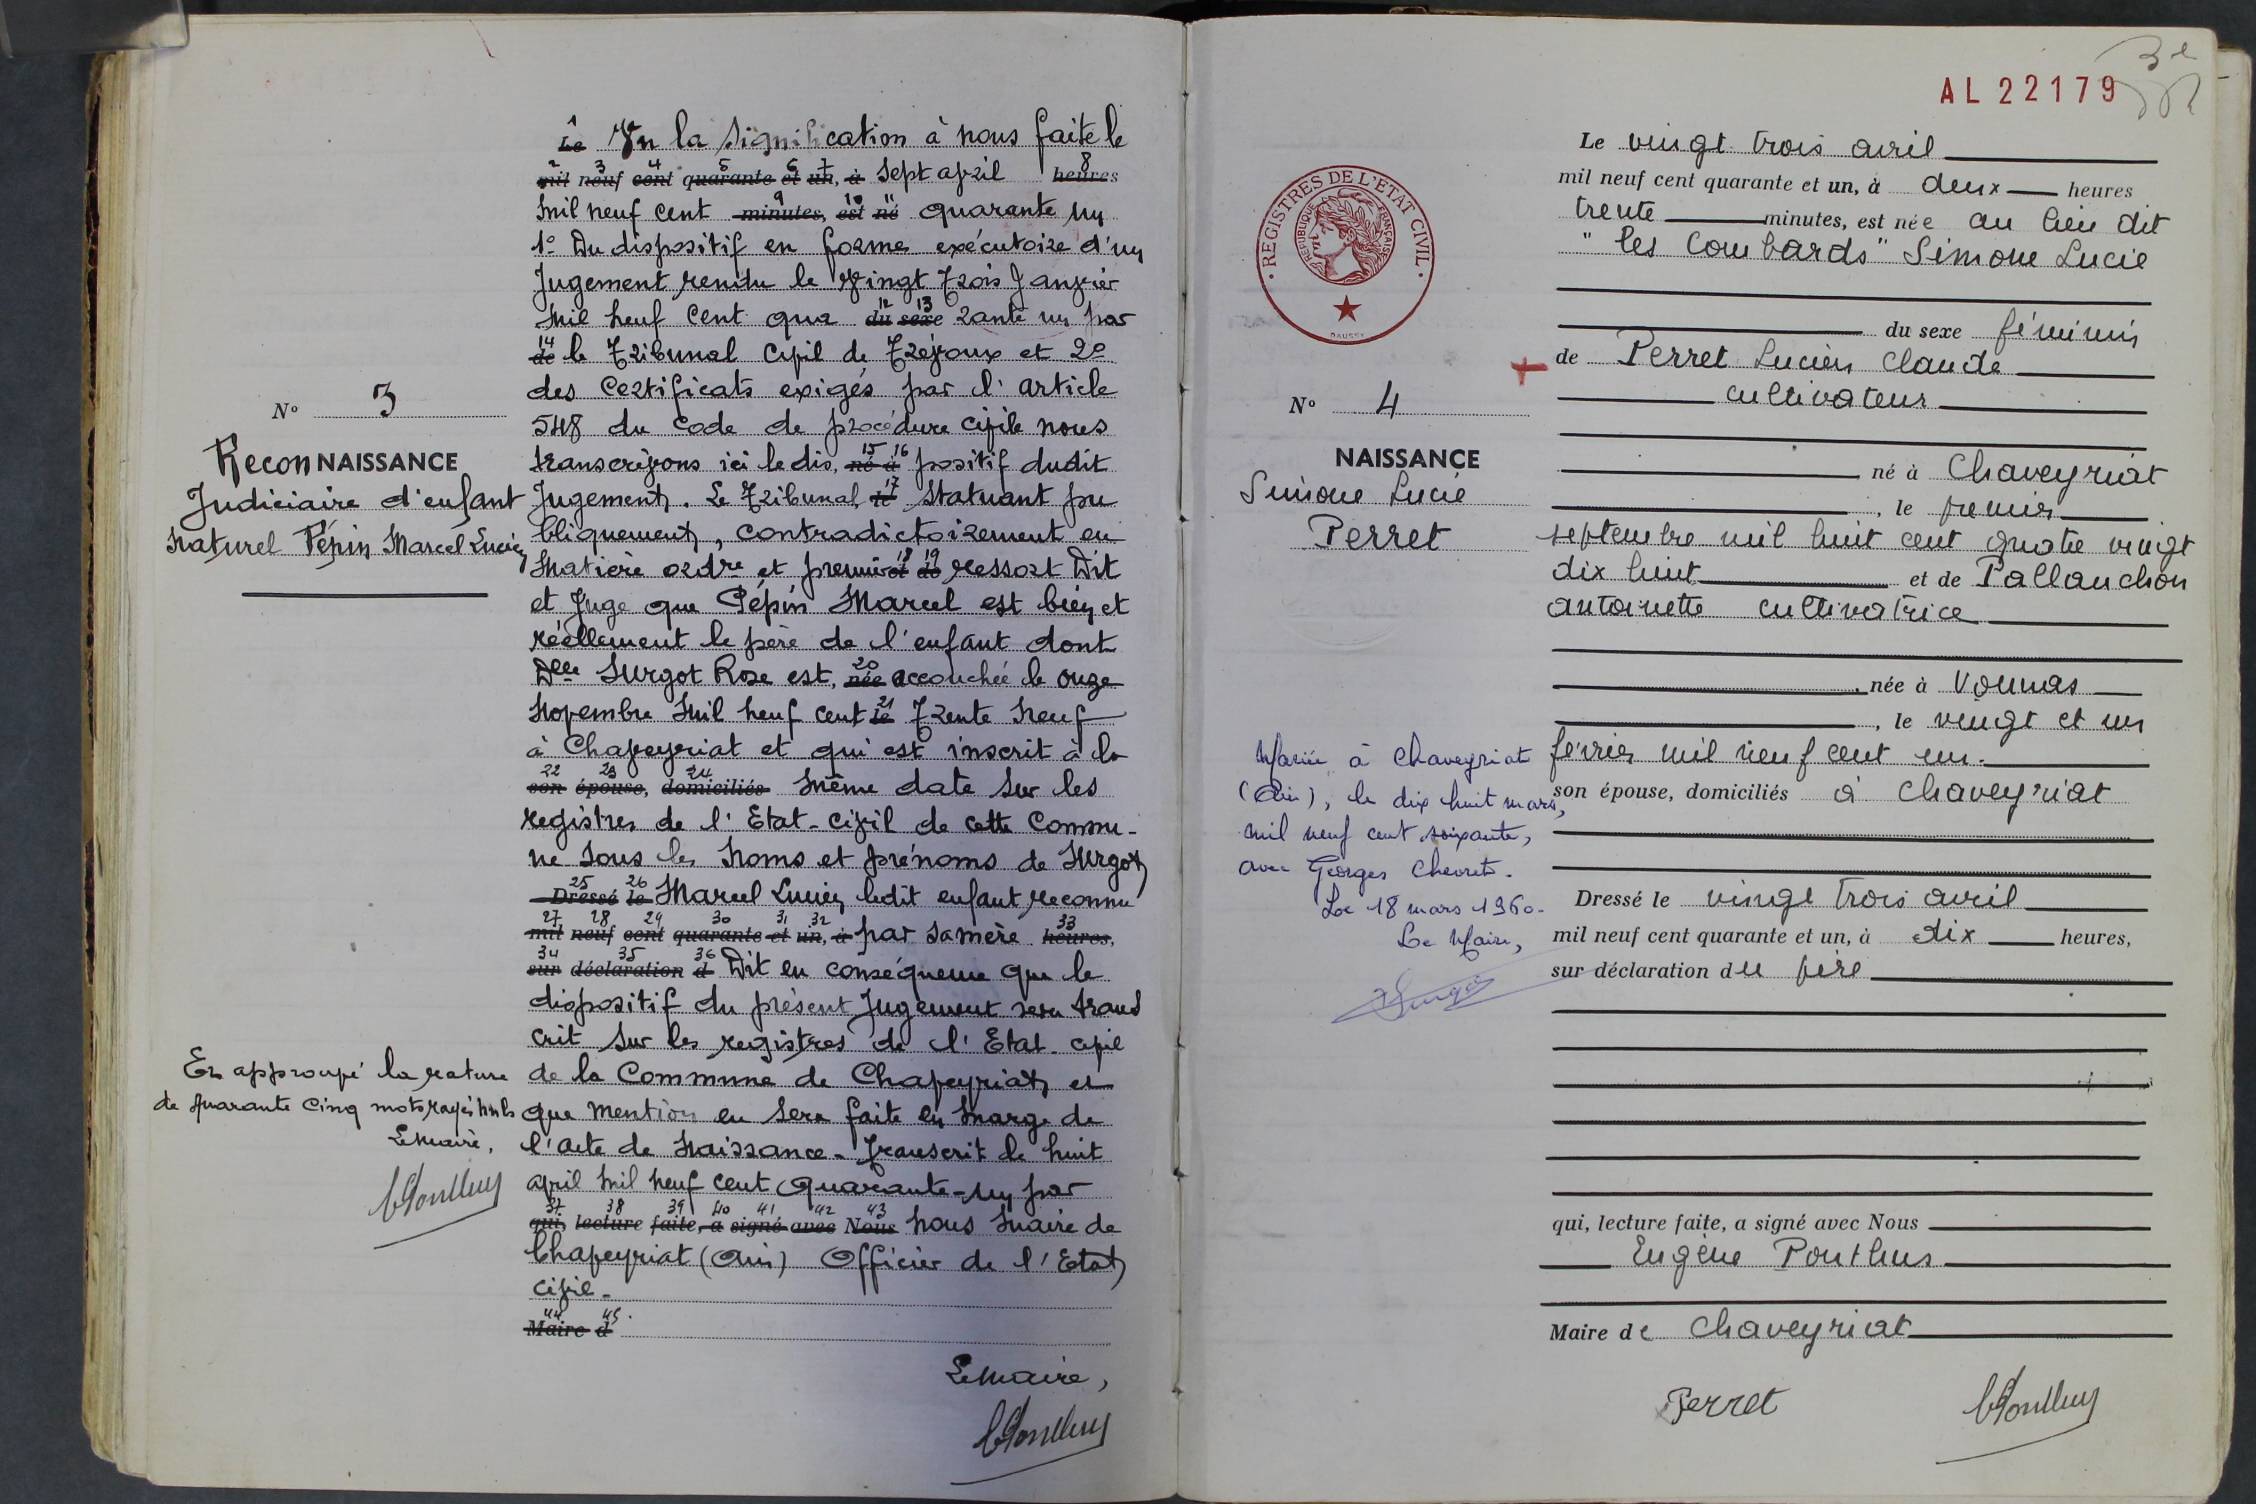 N° 3
ReconNAISSANCE
Judiciaire d'enfant
naturel Pépin Marcel Lucien
En approuvé la rature
de quarante cinq mots rayés nuls
Le maire,
Le Vu la signification à nous faite le
2 3 4 5 6 7 8
mil neuf cent quarante et un, à sept avril heures
9 10 11
mil neuf cent minutes, est né quarante un
1° Du dispositif en forme exécutoire d'un
Jugement rendu le Vingt Trois Janvier
12 13
mil neuf cent qua du sexe rante un par
14
de le Tribunal Civil de Trévoux et 2°
des Certificats exigés par l'article
548 du Code de procédure civile nous
15 16
transcrivons ici le dis, né à positif dudit
17
Jugement. Le Tribunal le statuant pu
bliquement, contradictoirement en
18 19
Matière ordre et premier et de ressort Dit
et Juge que Pépin Marcel est bien et
réellement le père de l'enfant dont
20
Delle Surgot Rose est, née accouchée le onze
21
Novembre Mil neuf cent le Trente Neuf
à Chaveyriat et qui est inscrit à la
22 23 24
son épouse, domiciliés même date sur les
registres de l'Etat-civil de cette Commu-
ne sous les noms et prénoms de Surgot
25 26
Dressé le Marcel Lucien ledit enfant reconnu
27 28 29 30 31 32 33
mil neuf cent quarante et un, à par sa mère heures,
34 35 36
sur déclaration d Dit en conséquence que le
dispositif du présent Jugement sera trans
crit sur les registres de l'Etat-civil
de la Commune de Chaveyriat et
que mention en sera faite en marge de
l'acte de naissance - Transcrit le huit
avril mil neuf cent Quarante-un par
37 38 39 40 41 42 43
qui, lecture faite, a signé avec Nous nous maire de
Chaveyriat (Ain) Officier de l'Etat
civil -
44 45
Maire d
Le maire,
AL 22179
3e
REGISTRES DE L'ETAT CIVIL
REPUBLIQUE FRANÇAISE
N° 4
NAISSANCE
Simone Lucie
Perret
Mariée à Chaveyriat
(Ain), le dix huit mars,
mil neuf cent soixante,
avec Georges Chevret.
Le 18 mars 1960.
Le Maire,
Le vingt trois avril
mil neuf cent quarante et un, à deux heures
trente minutes, est née au lieu dit
"les Combards" Simone Lucie
du sexe féminin
de Perret Lucien Claude
cultivateur
né à Chaveyriat
, le premier
septembre mil huit cent quatre vingt
dix huit et de Pallanchon
antoinette cultivatrice
, née à Vonnas
, le vingt et un
février mil neuf cent un.
son épouse, domiciliés à Chaveyriat
Dressé le vingt trois avril
mil neuf cent quarante et un, à dix heures,
sur déclaration du père
qui, lecture faite, a signé avec Nous
Eugène Ponthus
Maire de Chaveyriat
Perret